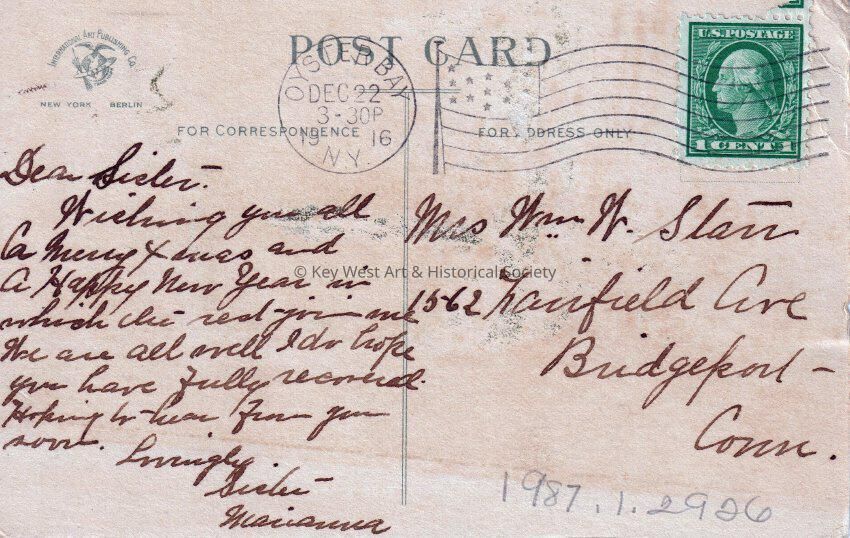 INTERNATIONAL ART PUBLISHING CO.
NEW YORK BERLIN
POST CARD
OYSTER BAY
DEC 22
3-30P
1916
N.Y.
U.S. POSTAGE
1 CENT 1
FOR CORRESPONDENCE
FOR ADDRESS ONLY
Dear Sister.
Wishing you all
a Merry Xmas and
A Happy New Year in
which the rest join me
We are all well I do hope
you have fully recovered.
Hoping to hear from you
soon.
Lovingly
Sister
Marianna
Mrs Wm W. Starr
1562 Fairfield Ave
Bridgeport-
Conn.
© Key West Art & Historical Society
1987.1.2926